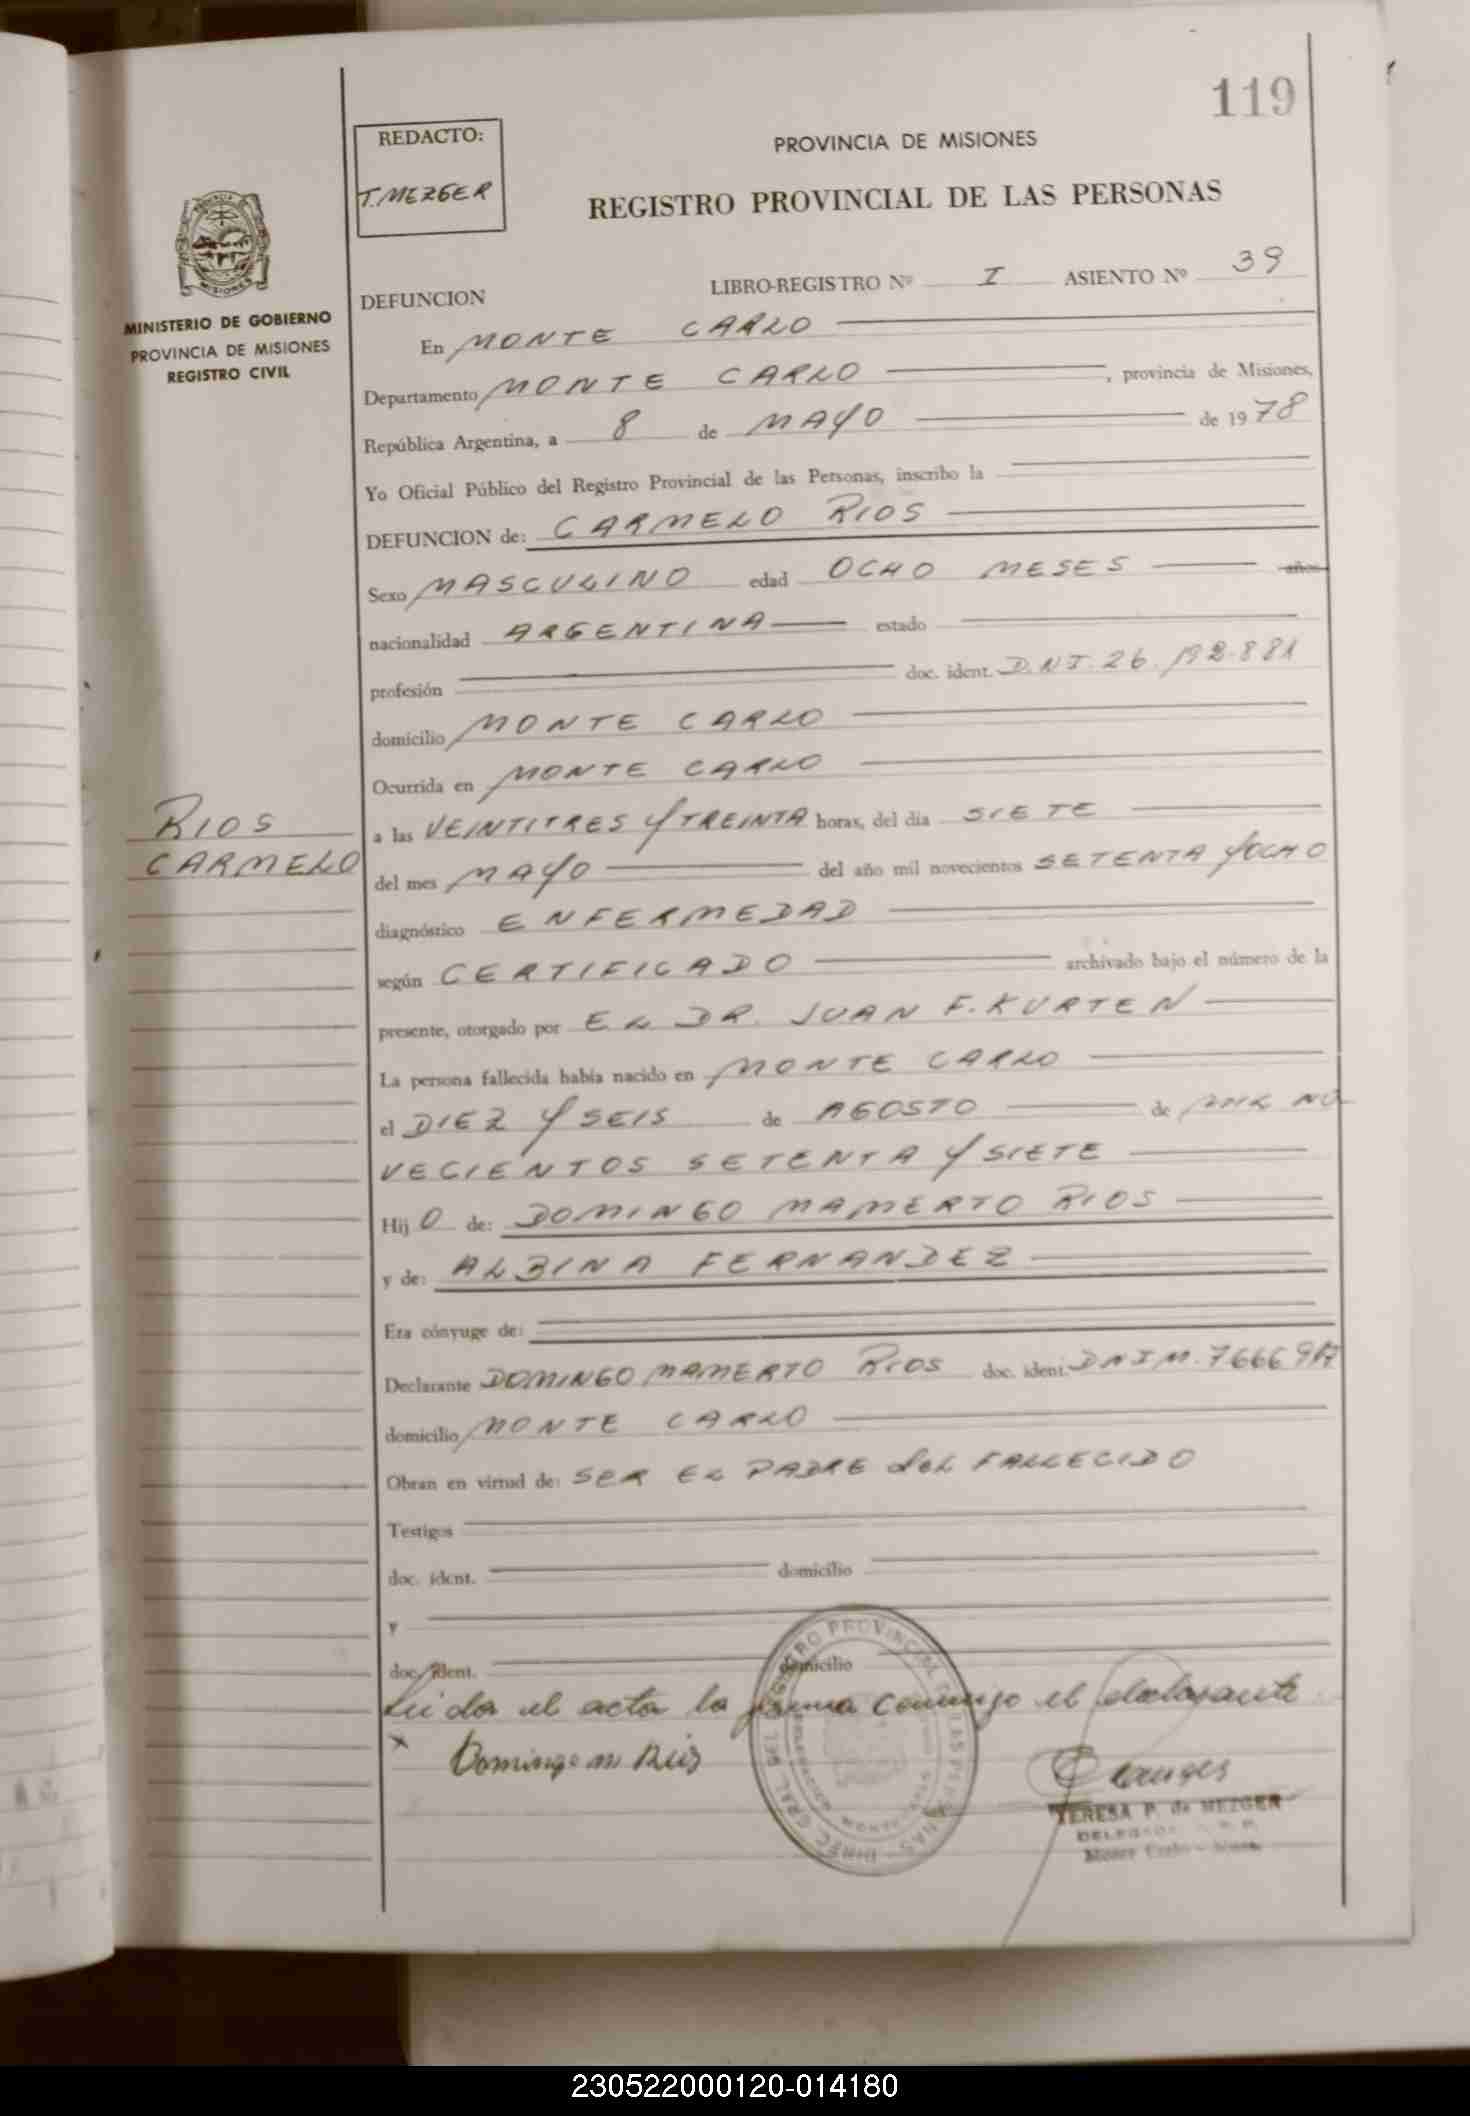 119
REDACTO:
T. MEZGER
PROVINCIA DE MISIONES
REGISTRO PROVINCIAL DE LAS PERSONAS
MINISTERIO DE GOBIERNO
PROVINCIA DE MISIONES
REGISTRO CIVIL
LIBRO-REGISTRO Nº I ASIENTO Nº 39
DEFUNCION
En MONTE CARLO
Departamento MONTE CARLO, provincia de Misiones,
República Argentina, a 8 de MAYO de 1978
Yo Oficial Público del Registro Provincial de las Personas, inscribo la
DEFUNCION de: CARMELO RIOS
Sexo MASCULINO edad OCHO MESES años
nacionalidad ARGENTINA estado
profesión doc. ident. D.N.I. 26.192.881
domicilio MONTE CARLO
Ocurrida en MONTE CARLO
RIOS
CARMELO
a las VEINTITRES Y TREINTA horas, del día SIETE
del mes MAYO del año mil novecientos SETENTA Y OCHO
diagnóstico ENFERMEDAD
según CERTIFICADO archivado bajo el número de la
presente, otorgado por EL DR. JUAN F. KURTEN
La persona fallecida había nacido en MONTE CARLO
el DIEZ Y SEIS de AGOSTO de MIL NO
VECIENTOS SETENTA Y SIETE
Hij O de: DOMINGO MAMERTO RIOS
y de: ALBINA FERNANDEZ
Era cónyuge de:
Declarante DOMINGO MAMERTO RIOS doc. ident. DNI M.
domicilio MONTE CARLO
Obran en virtud de: SER EL PADRE del FALLECIDO
Testigos
doc. ident. domicilio
y
doc. ident. domicilio
Leida el acta la firma conmigo el declarante
x Domingo m Rios
TERESA P. de MEZGER
DELEGADA
Monte Carlo - Mnes.
REGISTRO PROVINCIAL DE LAS PERSONAS
DIREC. GRAL. DEL
230522000120-014180